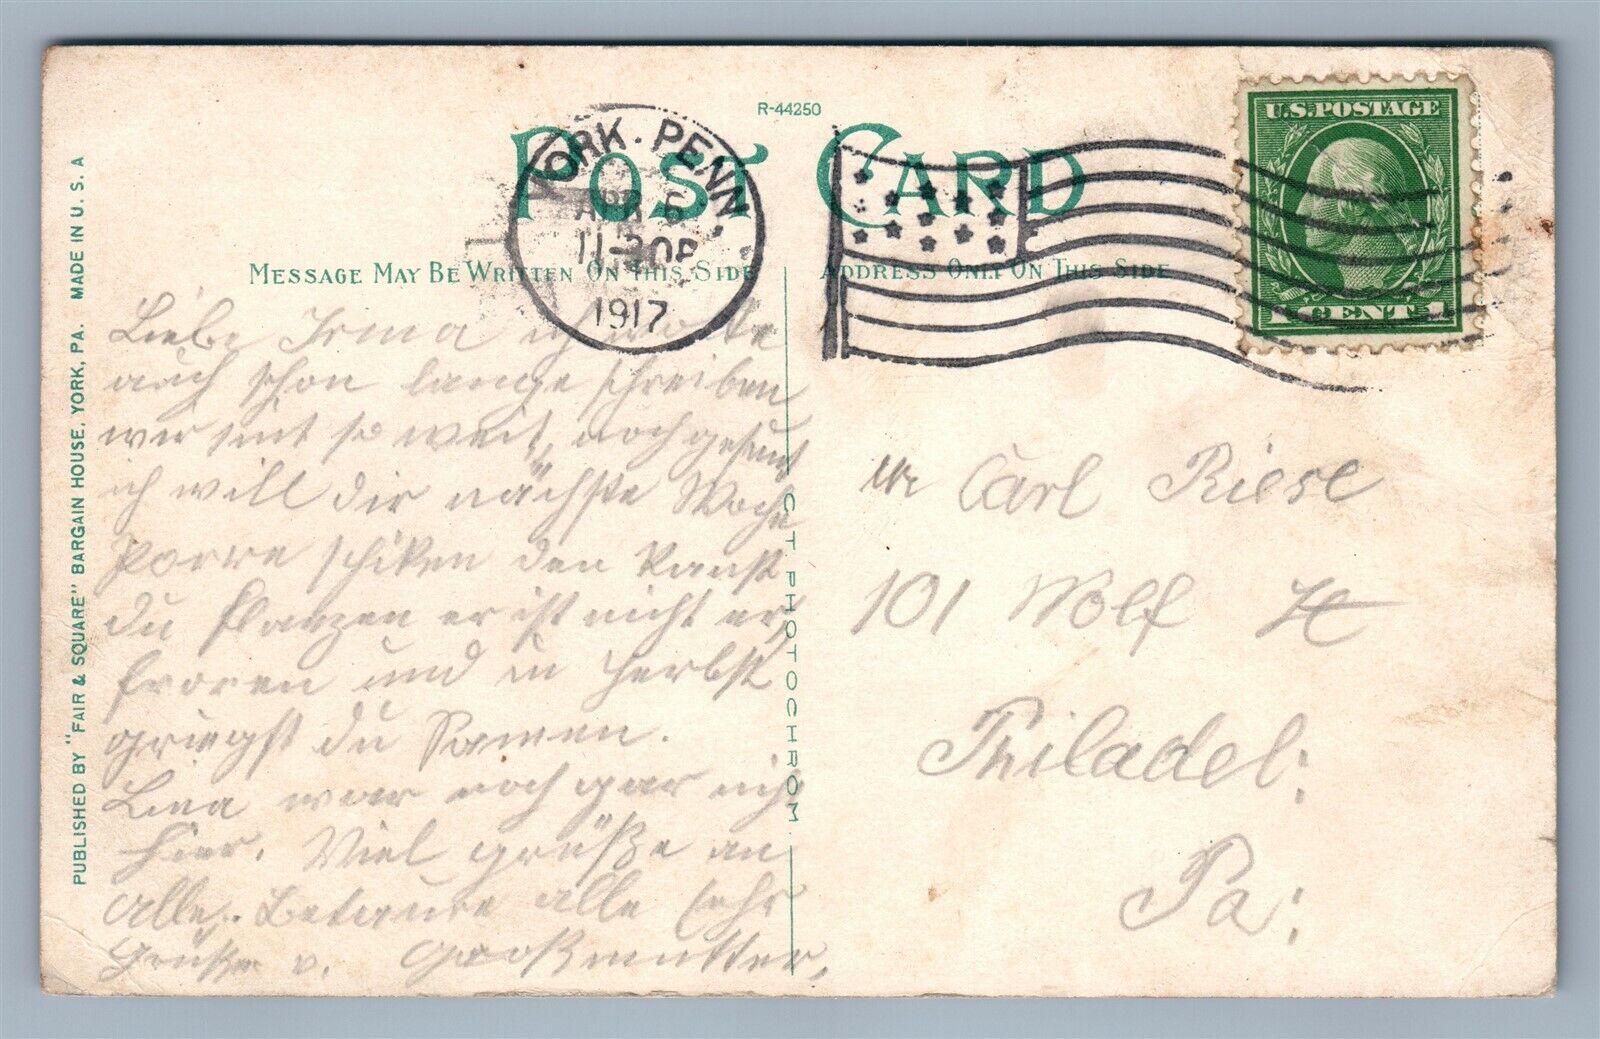 R-44250
POST CARD
YORK. PENN.
APR 6
11-30P
1917
U.S. POSTAGE
1 CENT 1
MESSAGE MAY BE WRITTEN ON THIS SIDE
ADDRESS ONLY ON THIS SIDE
PUBLISHED BY "FAIR & SQUARE" BARGAIN HOUSE, YORK, PA. MADE IN U. S. A
C T PHOTOCHROM
Liebe Irma ich wollte
auch schon lange schreiben
wir sint so weit noch gesunt
ich will dir nächste Woche
schiken den kanst
du Flanzen er ist nicht er
froren und in Herbst
griegst du Samen.
Lina war noch gar nicht
hier. Viel grüße an
alle. alle sehr
Grüße v. Großmutter.
Mr Carl Riese
101 Wolf St
Philadel:
Pa: